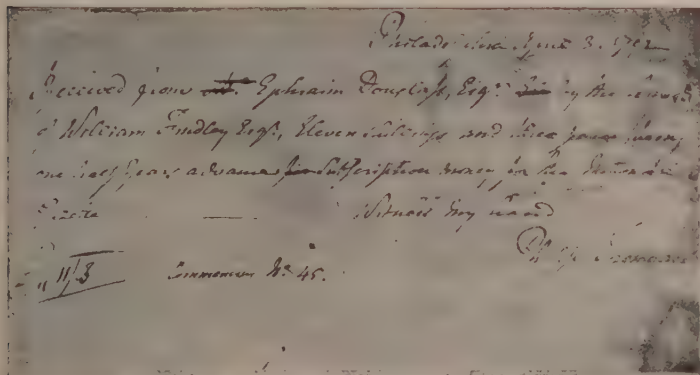 Philadelphia June 3. 1792
Received from Ephraim Douglass, Esqr. by the hands
of William Findley Esqr., Eleven shillings and three pence being
one half year advance subscription money for the
Gazette — Witness my hand
11/3 Commences No. 45.